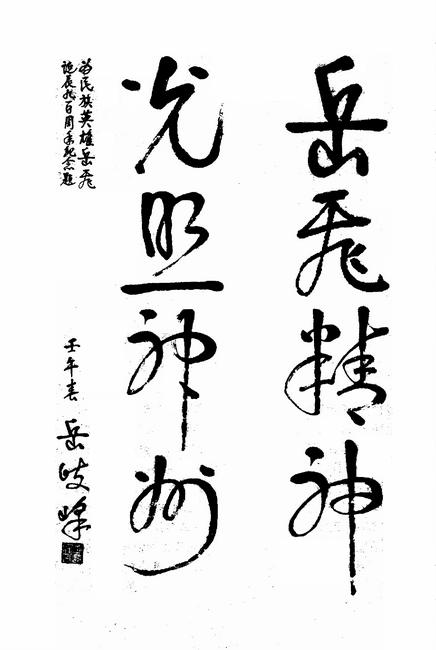 岳飛精神
光照神州
为民族英雄岳飛
诞辰九百周年纪念题
壬午春
岳岐峰